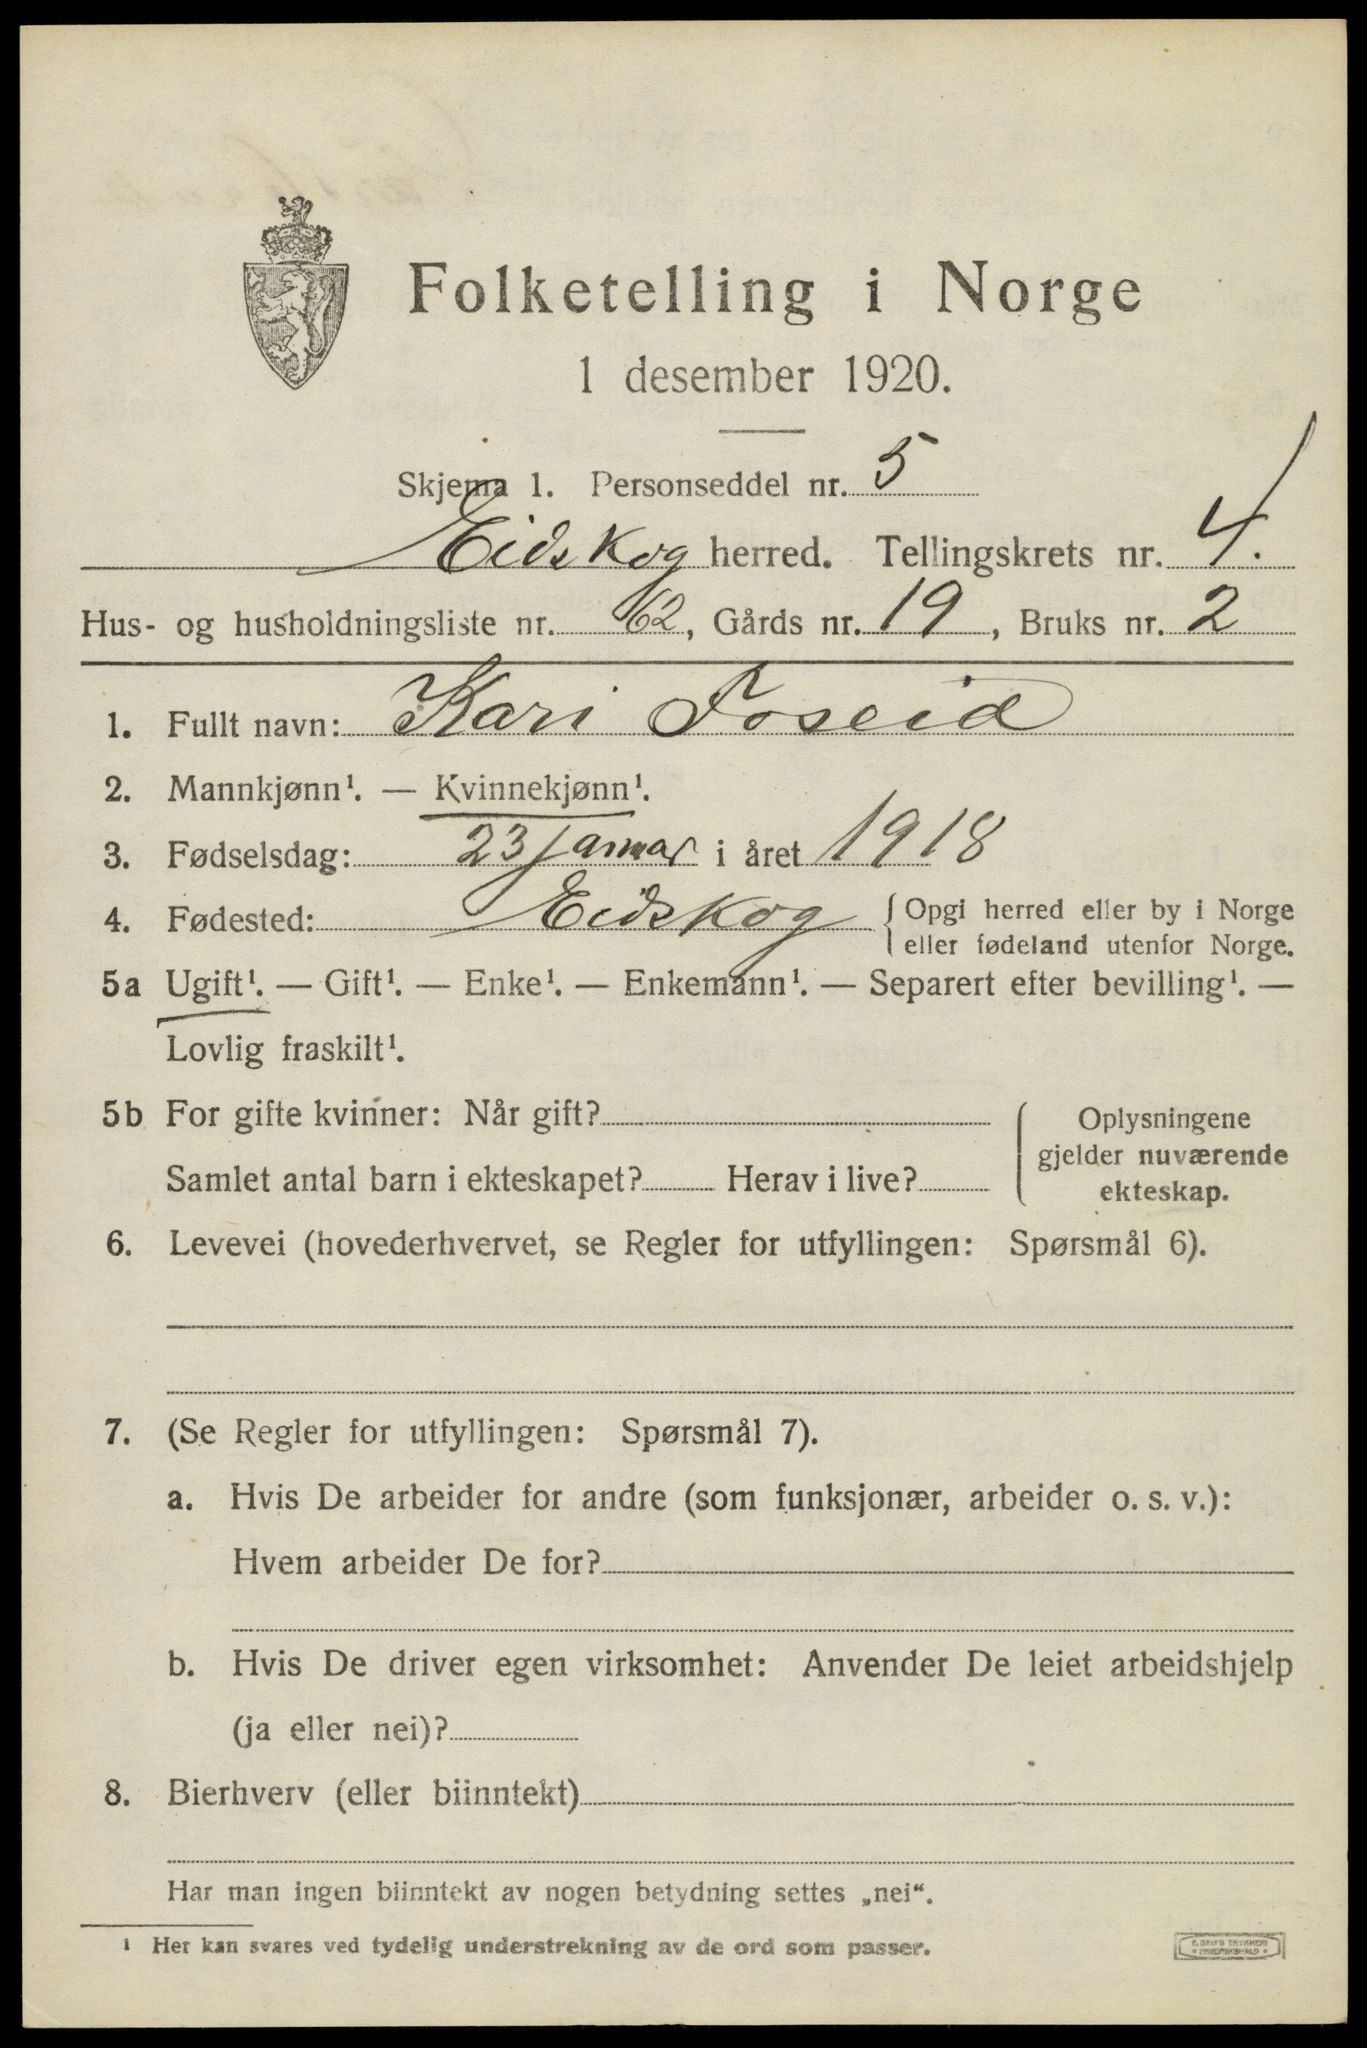 Folketelling i Norge
1 desember 1920.
Skjema 1. Personseddel nr. 5
Eidskog herred. Tellingskrets nr. 4.
Hus- og husholdningsliste nr. 62, Gårds nr. 19, Bruks nr. 2
1. Fullt navn: Kari Foseid
2. Mannkjønn¹. — Kvinnekjønn¹.
3. Fødselsdag: 23 januar i året 1918
4. Fødested: Eidskog { Opgi herred eller by i Norge
eller fødeland utenfor Norge.
5a Ugift¹. — Gift¹. — Enke¹. — Enkemann¹. — Separert efter bevilling¹. —
Lovlig fraskilt¹.
5b For gifte kvinner: Når gift?
Samlet antal barn i ekteskapet? Herav i live?
Oplysningene
gjelder nuværende
ekteskap.
6. Levevei (hovederhvervet, se Regler for utfyllingen: Spørsmål 6).
7. (Se Regler for utfyllingen: Spørsmål 7).
a. Hvis De arbeider for andre (som funksjonær, arbeider o. s. v.):
Hvem arbeider De for?
b. Hvis De driver egen virksomhet: Anvender De leiet arbeidshjelp
(ja eller nei)?
8. Bierhverv (eller biinntekt)
Har man ingen biinntekt av nogen betydning settes „nei“.
¹ Her kan svares ved tydelig understrekning av de ord som passer.